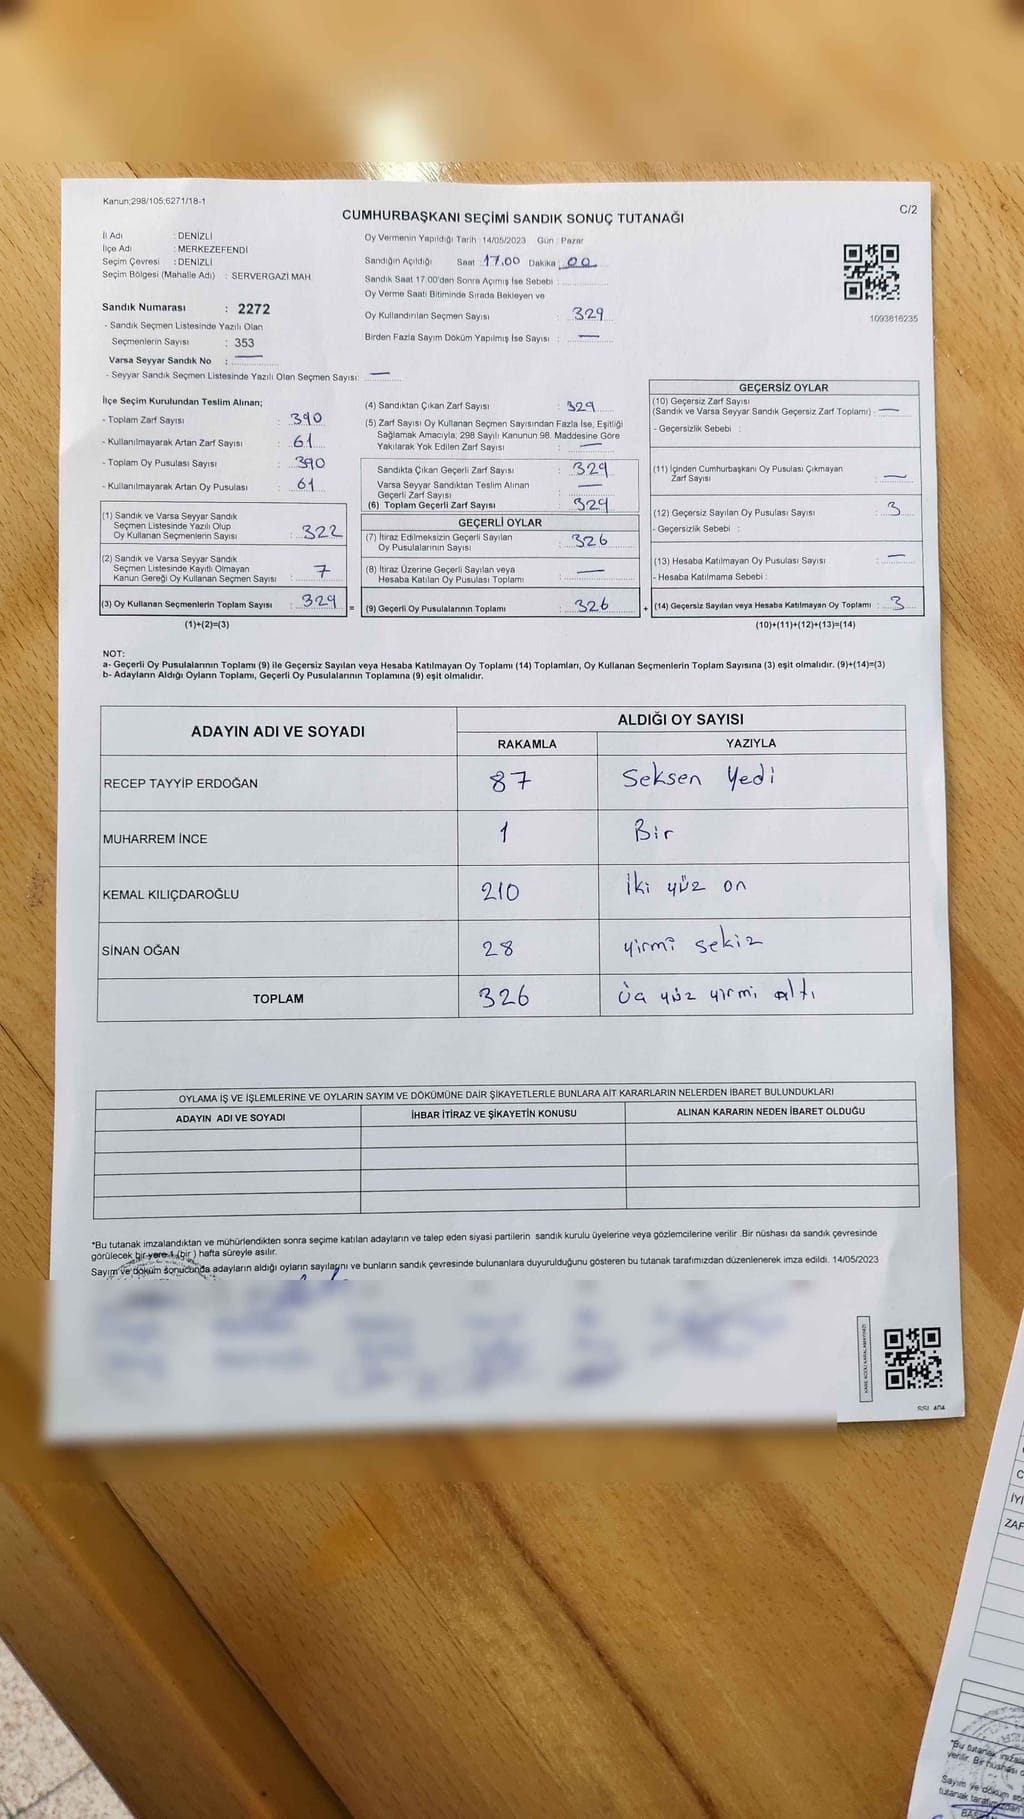 Kanun;298/105;6271/18-1
CUMHURBAŞKANI SEÇİMİ SANDIK SONUÇ TUTANAĞI
C/2
İl Adı : DENİZLİ
İlçe Adı : MERKEZEFENDİ
Seçim Çevresi : DENİZLİ
Seçim Bölgesi (Mahalle Adı) : SERVERGAZİ MAH.
Sandık Numarası : 2272
- Sandık Seçmen Listesinde Yazılı Olan
Seçmenlerin Sayısı : 353
Varsa Seyyar Sandık No : —
- Seyyar Sandık Seçmen Listesinde Yazılı Olan Seçmen Sayısı: —
Oy Vermenin Yapıldığı Tarih : 14/05/2023 Gün : Pazar
Sandığın Açıldığı Saat : 17.00 Dakika : 00
Sandık Saat 17:00'den Sonra Açımış İse Sebebi :
Oy Verme Saati Bitiminde Sırada Bekleyen ve
Oy Kullandırılan Seçmen Sayısı : 329
Birden Fazla Sayım Döküm Yapılmış İse Sayısı : —
1093816235
İlçe Seçim Kurulundan Teslim Alınan;
- Toplam Zarf Sayısı : 390
- Kullanılmayarak Artan Zarf Sayısı : 61
- Toplam Oy Pusulası Sayısı : 390
- Kullanılmayarak Artan Oy Pusulası : 61
(1) Sandık ve Varsa Seyyar Sandık
Seçmen Listesinde Yazılı Olup
Oy Kullanan Seçmenlerin Sayısı : 322
(2) Sandık ve Varsa Seyyar Sandık
Seçmen Listesinde Kayıtlı Olmayan
Kanun Gereği Oy Kullanan Seçmen Sayısı : 7
(3) Oy Kullanan Seçmenlerin Toplam Sayısı : 329
(1)+(2)=(3)
(4) Sandıktan Çıkan Zarf Sayısı : 329
(5) Zarf Sayısı Oy Kullanan Seçmen Sayısından Fazla İse, Eşitliği
Sağlamak Amacıyla; 298 Sayılı Kanunun 98. Maddesine Göre
Yakılarak Yok Edilen Zarf Sayısı : —
Sandıkta Çıkan Geçerli Zarf Sayısı : 329
Varsa Seyyar Sandıktan Teslim Alınan
Geçerli Zarf Sayısı : —
(6) Toplam Geçerli Zarf Sayısı : 329
GEÇERLİ OYLAR
(7) İtiraz Edilmeksizin Geçerli Sayılan
Oy Pusulalarının Sayısı : 326
(8) İtiraz Üzerine Geçerli Sayılan veya
Hesaba Katılan Oy Pusulası Toplamı : —
= (9) Geçerli Oy Pusulalarının Toplamı : 326
GEÇERSİZ OYLAR
(10) Geçersiz Zarf Sayısı
(Sandık ve Varsa Seyyar Sandık Geçersiz Zarf Toplamı) : —
- Geçersizlik Sebebi :
(11) İçinden Cumhurbaşkanı Oy Pusulası Çıkmayan
Zarf Sayısı : —
(12) Geçersiz Sayılan Oy Pusulası Sayısı : 3
- Geçersizlik Sebebi :
(13) Hesaba Katılmayan Oy Pusulası Sayısı : —
- Hesaba Katılmama Sebebi :
+ (14) Geçersiz Sayılan veya Hesaba Katılmayan Oy Toplamı : 3
(10)+(11)+(12)+(13)=(14)
NOT:
a- Geçerli Oy Pusulalarının Toplamı (9) ile Geçersiz Sayılan veya Hesaba Katılmayan Oy Toplamı (14) Toplamları, Oy Kullanan Seçmenlerin Toplam Sayısına (3) eşit olmalıdır. (9)+(14)=(3)
b- Adayların Aldığı Oyların Toplamı, Geçerli Oy Pusulalarının Toplamına (9) eşit olmalıdır.
ADAYIN ADI VE SOYADI
ALDIĞI OY SAYISI
RAKAMLA YAZIYLA
RECEP TAYYİP ERDOĞAN 87 Seksen Yedi
MUHARREM İNCE 1 Bir
KEMAL KILIÇDAROĞLU 210 İki yüz on
SİNAN OĞAN 28 yirmi sekiz
TOPLAM 326 Üç yüz yirmi altı
OYLAMA İŞ VE İŞLEMLERİNE VE OYLARIN SAYIM VE DÖKÜMÜNE DAİR ŞİKAYETLERLE BUNLARA AİT KARARLARIN NELERDEN İBARET BULUNDUKLARI
ADAYIN ADI VE SOYADI İHBAR İTİRAZ VE ŞİKAYETİN KONUSU ALINAN KARARIN NEDEN İBARET OLDUĞU
*Bu tutanak imzalandıktan ve mühürlendikten sonra seçime katılan adayların ve talep eden siyasi partilerin sandık kurulu üyelerine veya gözlemcilerine verilir .Bir nüshası da sandık çevresinde
görülecek bir yere 1 (bir ) hafta süreyle asılır.
Sayım ve döküm sonucunda adayların aldığı oyların sayılarını ve bunların sandık çevresinde bulunanlara duyurulduğunu gösteren bu tutanak tarafımızdan düzenlenerek imza edildi. 14/05/2023
C
İYİ
ZAF
*Bu tutanak
verilir. Bir nüshası
Sayım ve döküm
tutanak